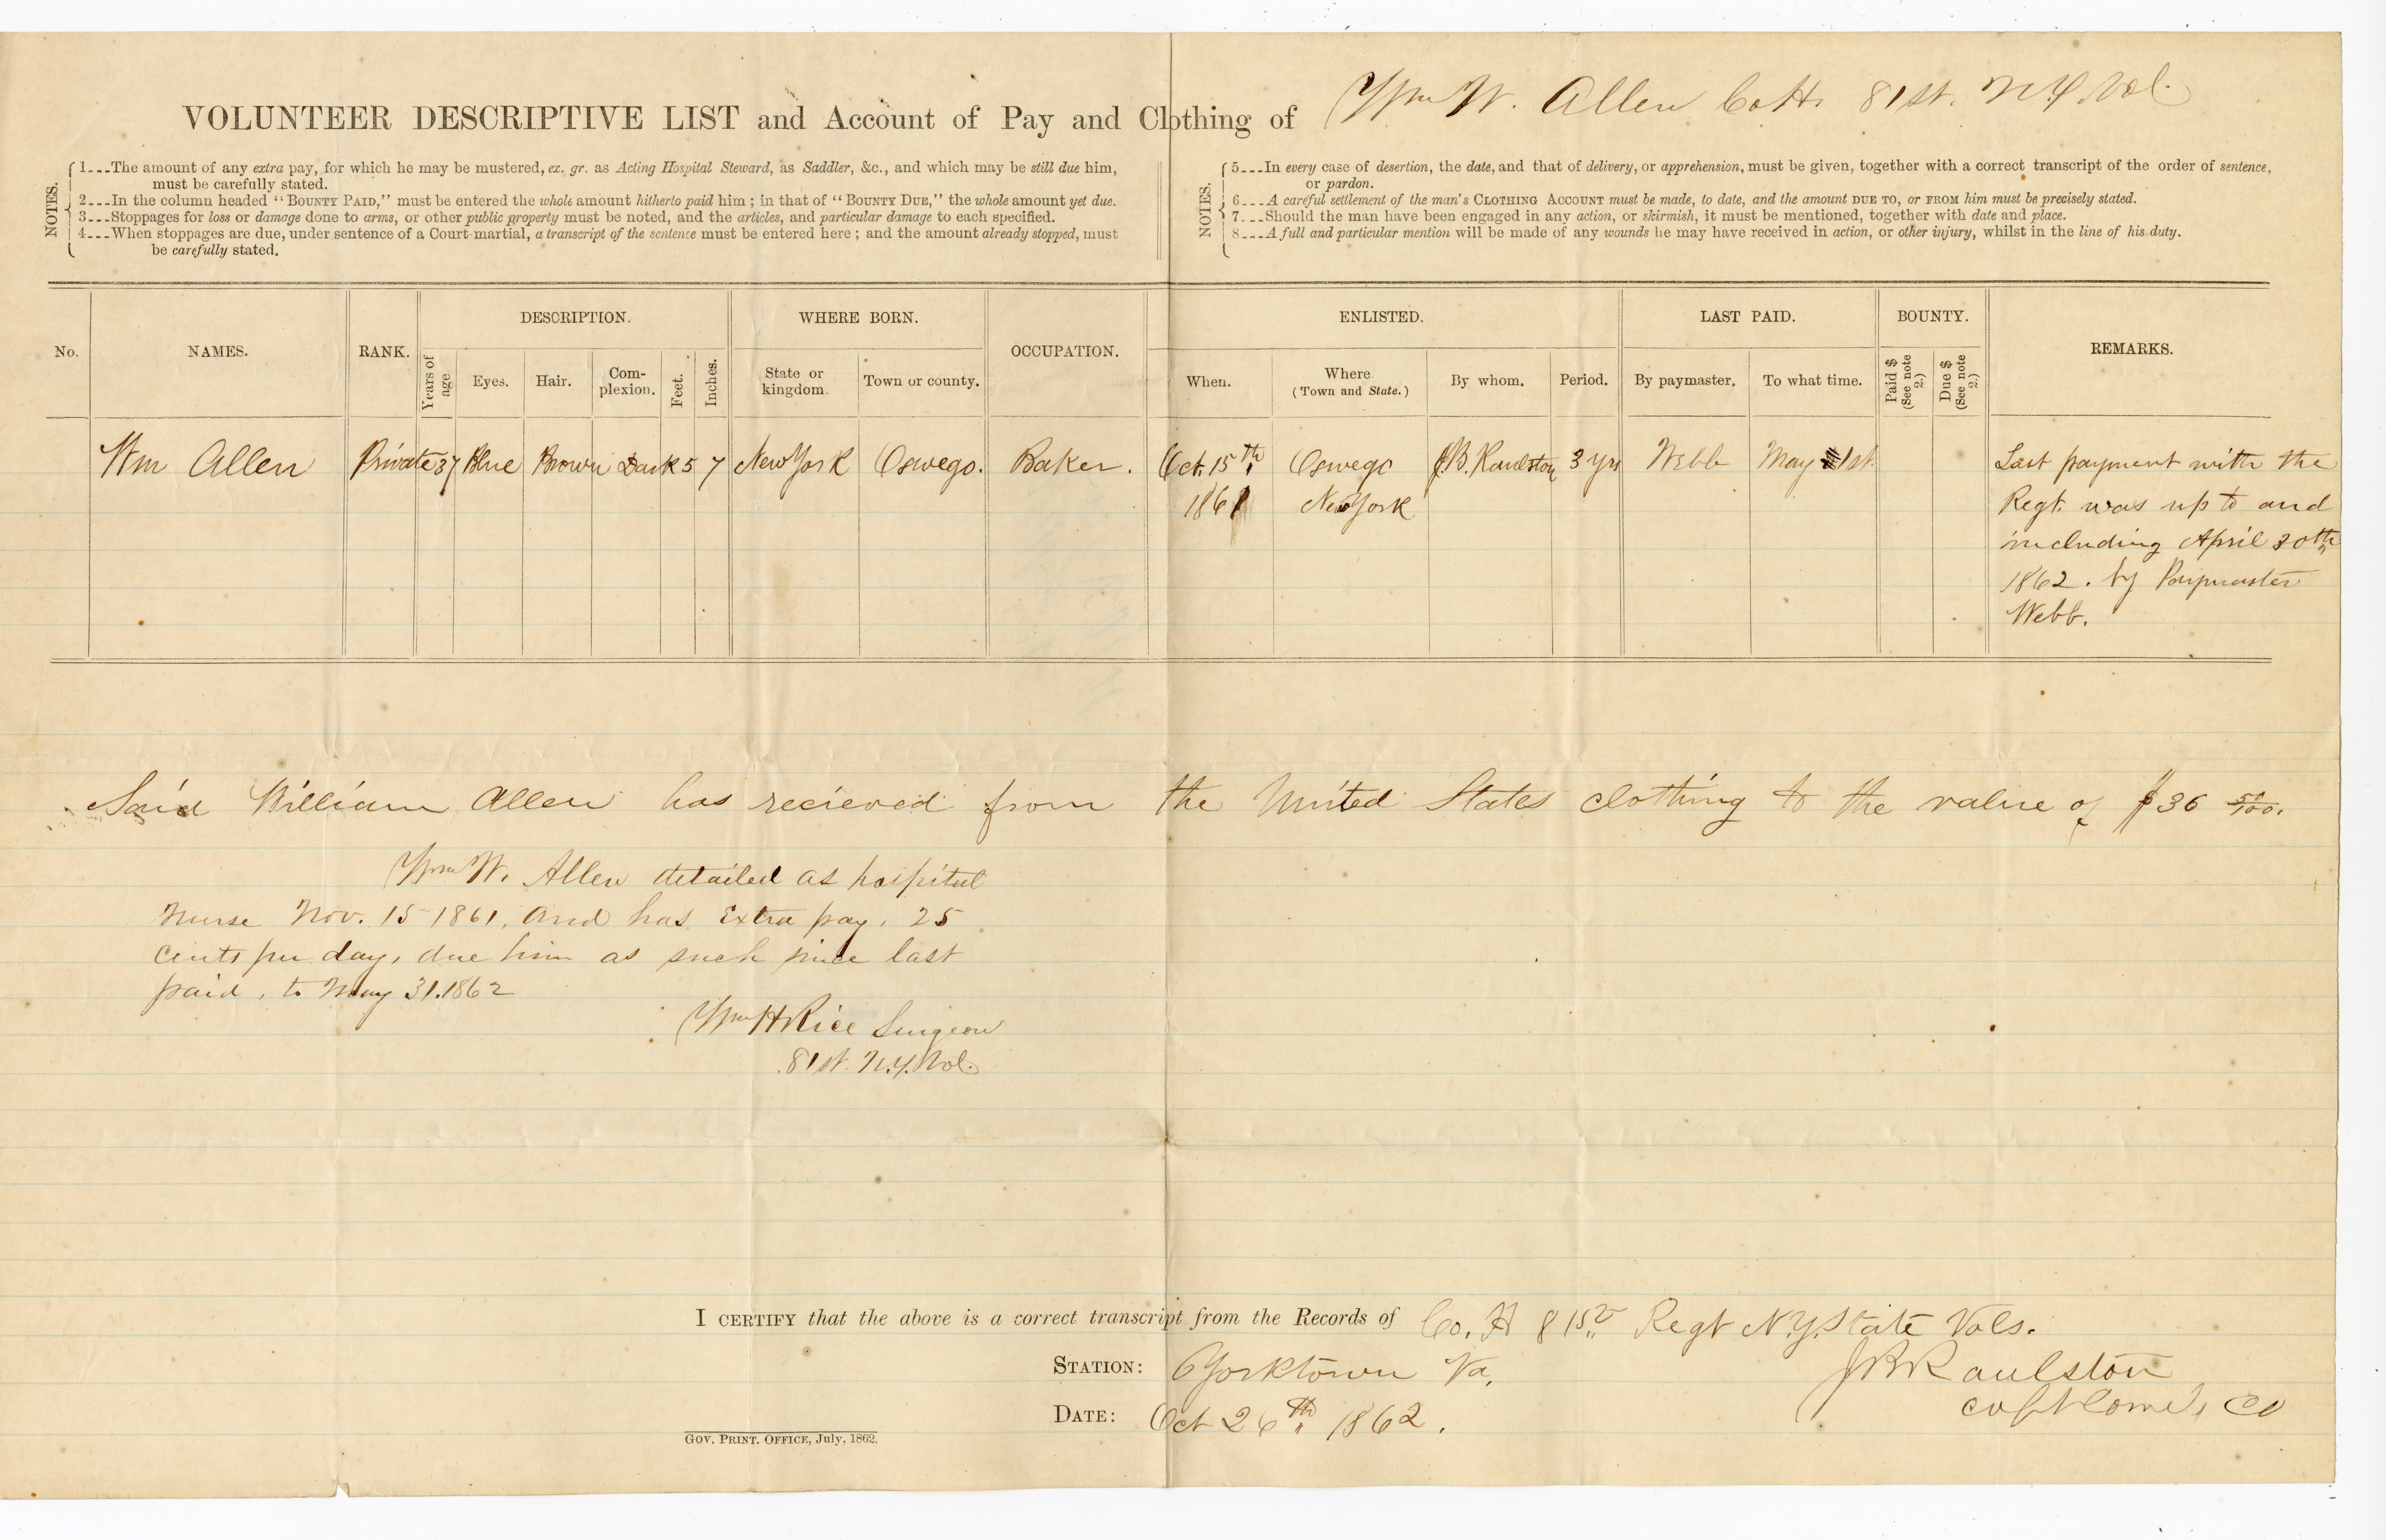 VOLUNTEER DESCRIPTIVE LIST and Account of Pay and Clothing of Wm W. Allen Co H. 81st. N.Y. Vol.
NOTES.
1---The amount of any extra pay, for which he may be mustered, ex. gr. as Acting Hospital Steward, as Saddler, &c., and which may be still due him,
must be carefully stated.
2---In the column headed "BOUNTY PAID," must be entered the whole amount hitherto paid him; in that of "BOUNTY DUE," the whole amount yet due.
3---Stoppages for loss or damage done to arms, or other public property must be noted, and the articles, and particular damage to each specified.
4---When stoppages are due, under sentence of a Court-martial, a transcript of the sentence must be entered here; and the amount already stopped, must
be carefully stated.
NOTES.
5---In every case of desertion, the date, and that of delivery, or apprehension, must be given, together with a correct transcript of the order of sentence,
or pardon.
6---A careful settlement of the man's CLOTHING ACCOUNT must be made, to date, and the amount DUE TO, or FROM him must be precisely stated.
7---Should the man have been engaged in any action, or skirmish, it must be mentioned, together with date and place.
8---A full and particular mention will be made of any wounds he may have received in action, or other injury, whilst in the line of his duty.
No. NAMES. RANK. DESCRIPTION. WHERE BORN. OCCUPATION. ENLISTED. LAST PAID. BOUNTY. REMARKS.
Years of age Eyes. Hair. Com-plexion. Feet. Inches. State or kingdom. Town or county. When. Where (Town and State.) By whom. Period. By paymaster. To what time. Paid $ (See note 2.) Due $ (See note 2.)
Wm Allen Private 37 Blue Brown Dark 5 7 New York Oswego. Baker. Oct. 15th Oswego J.B. Raulston 3 yrs Webb May 1st. Last payment with the
1861 New York Regt. was up to and
including April 30th
1862. by Paymaster
Webb.
Said William Allen has recieved from the United States clothing to the value of $36 51/100.
Wm W. Allen detailed as hospital
Nurse Nov. 15 1861, and has Extra pay, 25
cents per day, due him as such since last
paid, to May 31. 1862
Wm H Rice Surgeon
81st. N.Y. Vol.
I CERTIFY that the above is a correct transcript from the Records of Co. H 81st Regt N.Y. State Vols.
STATION: Yorktown Va.
J B Raulston
DATE: Oct 26th 1862.
Capt Comd. Co
GOV. PRINT. OFFICE, July, 1862.